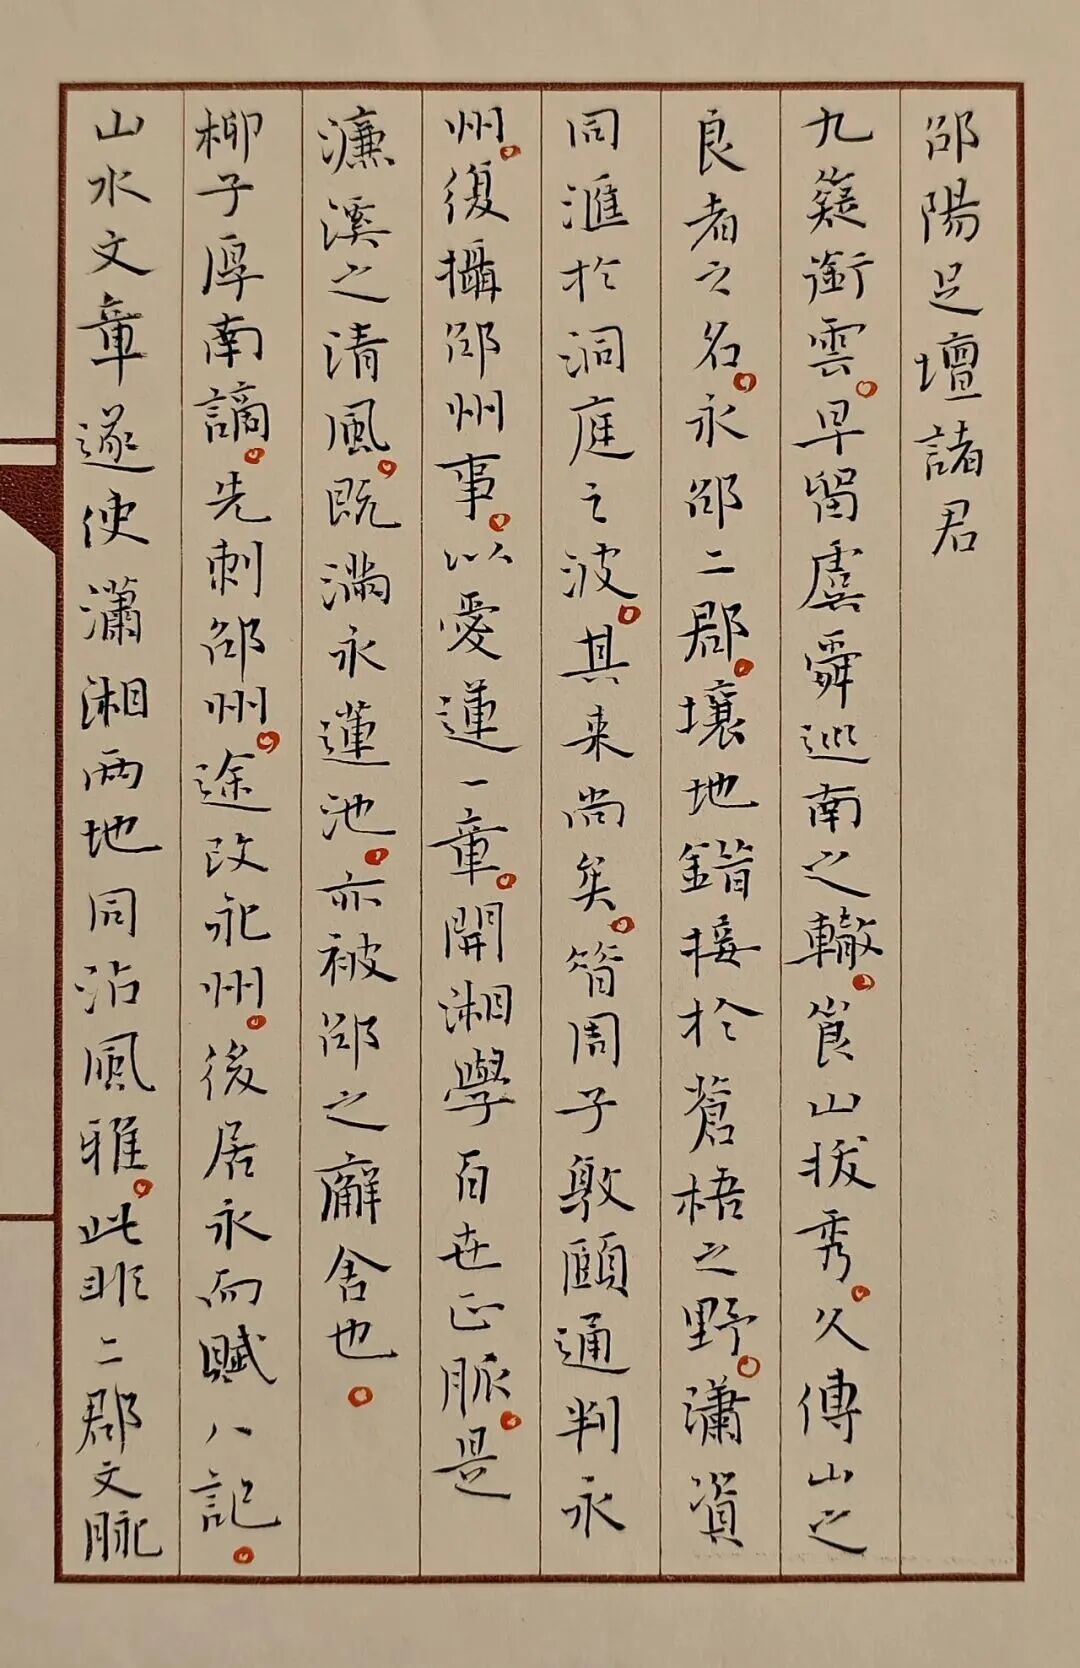 邵陽足壇諸君
九簸銜雲。早留虞舜巡南之轍。崀山拔秀。久傳山之
良者之名。永邵二郡。壤地錯接於蒼梧之野。瀟資
同滙於洞庭之波。其来尚矣。昝周子敦頤通判永
州。復攝邵州事。以愛蓮一章。開湘學百世正脈。是
濂溪之清風。既满永蓮池。亦被邵之廨舍也。
柳子厚南謫。先刺邵州。途改永州。後居永而賦八記。
山水文章遂使瀟湘兩地同沾風雅。此非二郡文脉